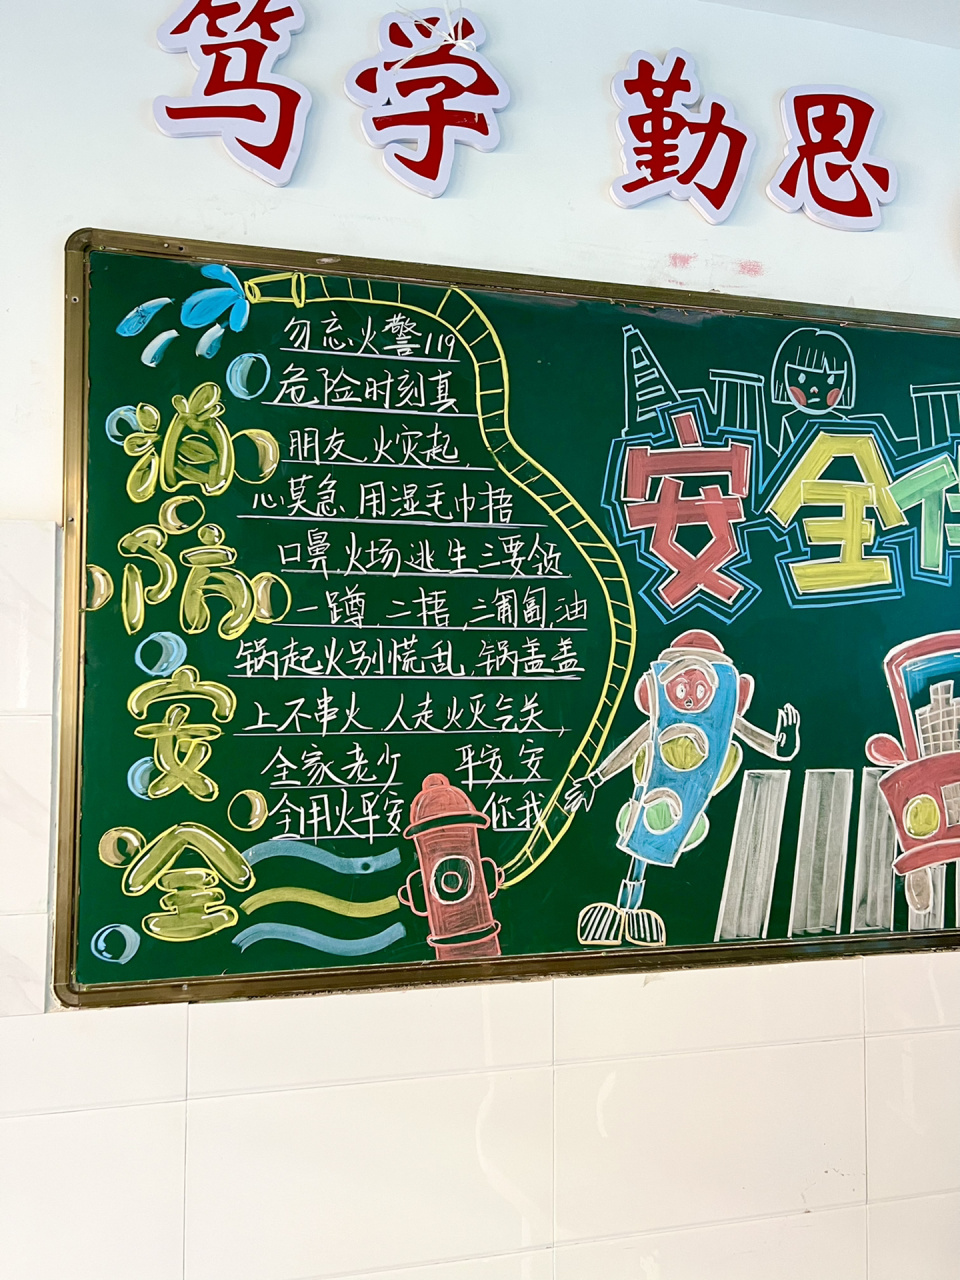 笃学 勤思
消防安全
勿忘火警119
危险时刻真
朋友,火灾起,
心莫急,用湿毛巾捂
口鼻,火场逃生三要领
一蹲,二捂,三匍匐,油
锅起火别慌乱,锅盖盖
上不串火,人走火灭气关,
全家老少 平安,安
全用火平安 你我
安全